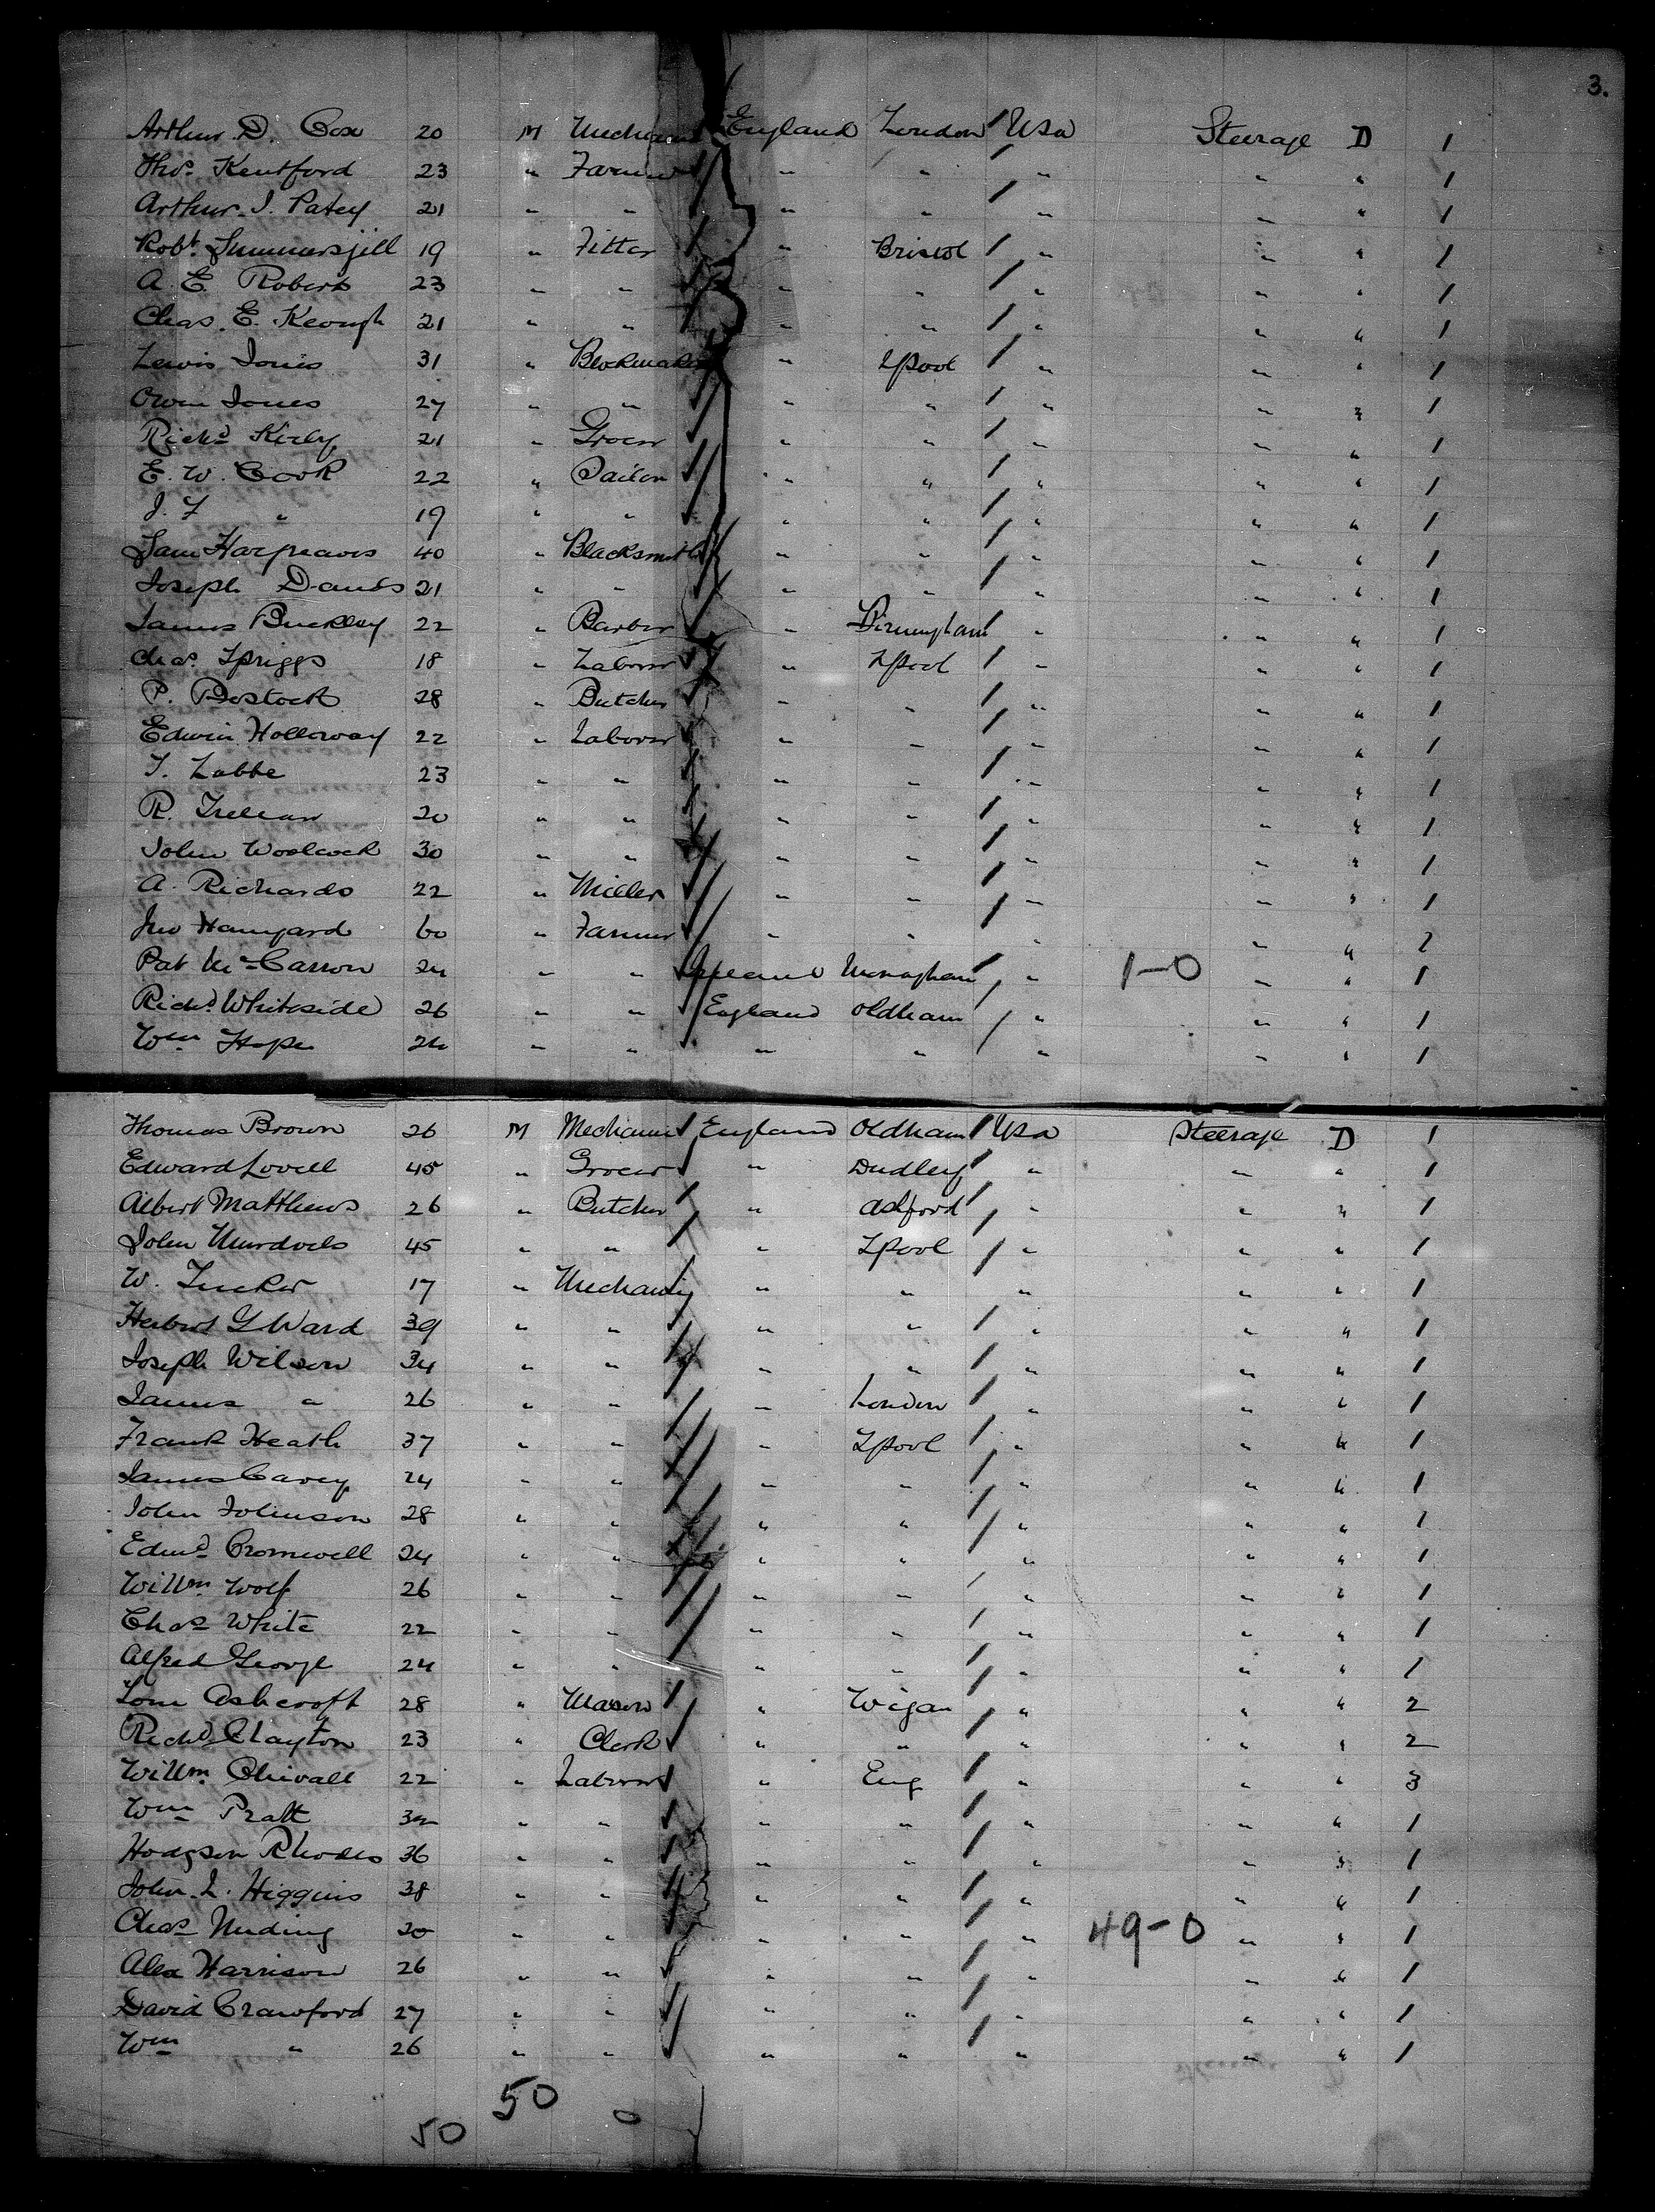 3.
Arthur D. Cox 20 M Mechanic England London Usa Steerage D 1
Thos. Kentford 23 " Farmer " " " " " 1
Arthur J. Patey 21 " " " " " " " 1
Robt. Summersgill 19 " Fitter " Bristol " " " 1
A. E. Roberts 23 " " " " " " " 1
Chas. E. Keough 21 " " " " " " " 1
Lewis Jones 31 " Blockmaker " Lpool " " " 1
Owen Jones 27 " " " " " " " 1
Richd Kirby 21 " Grocer " " " " " 1
E. W. Cook 22 " Sailor " " " " " 1
J. F " 19 " " " " " " " 1
Sam Hargreaves 40 " Blacksmith " " " " " 1
Joseph 21 " " " " " " " 1
James Buckley 22 " Barber " Birmingham " " " 1
Chas. Spriggs 18 " Laborer " Lpool " " " 1
P. Bostock 28 " Butcher " " " " " 1
Edwin Holloway 22 " Laborer " " " " " 1
T. Labbe 23 " " " " " " " 1
R. 20 " " " " " " " 1
John Woolcock 30 " " " " " " " 1
A. Richards 22 " Miller " " " " " 1
Jno 60 " Farmer " " " " " 2
Pat McCarron 24 " " Ireland Monaghan " 1-0 " " 1
Richd. Whiteside 26 " " England Oldham " " " 1
Wm Hope 24 " " " " " " " 1
Thomas Brown 26 M Mechanic England Oldham Usa Steerage D 1
Edward Lovell 45 " Grocer " Dudley " " " 1
Albert Matthews 26 " Butcher " Ashford " " " 1
John 45 " " " Lpool " " " 1
W. Tucker 17 " Mechanic " " " " " 1
Herbert G Ward 39 " " " " " " " 1
Joseph Wilson 34 " " " " " " " 1
James " 26 " " " London " " " 1
Frank Heath 37 " " " Lpool " " " 1
James Carey 24 " " " " " " " 1
John Johnson 28 " " " " " " " 1
Edmd Cromwell 24 " " " " " " " 1
Willm Wolf 26 " " " " " " " 1
Chas White 22 " " " " " " " 1
Alfred George 24 " " " " " " " 1
Tom Ashcroft 28 " Mason " Wigan " " " 2
Richd. Clayton 23 " Clerk " " " " " 2
Willm. Chivall 22 " Laborer " Eng " " " 3
Wm Pratt 32 " " " " " " " 1
Hodgson Rhodes 36 " " " " " " " 1
John L. Higgins 38 " " " " " " " 1
Chas Nuding 20 " " " " " 49-0 " " 1
Alex Harrison 26 " " " " " " " 1
David Crawford 27 " " " " " " " 1
Wm " 26 " " " " " " " 1
50
50 0